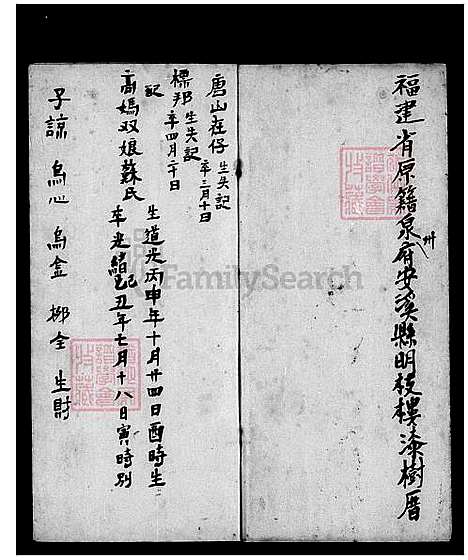 福建省原籍泉州府安溪縣明枝樓漆樹厝
唐山在仔 生失記 卒三月十日
標邦 生失記 卒四月二十日
記
高媽双娘蘇氏 生道光丙申年十月廿四日酉時生
卒光緒己丑年七月十八日寅時別
子諒 烏心 烏盒 柳全 生財
FamilySearch